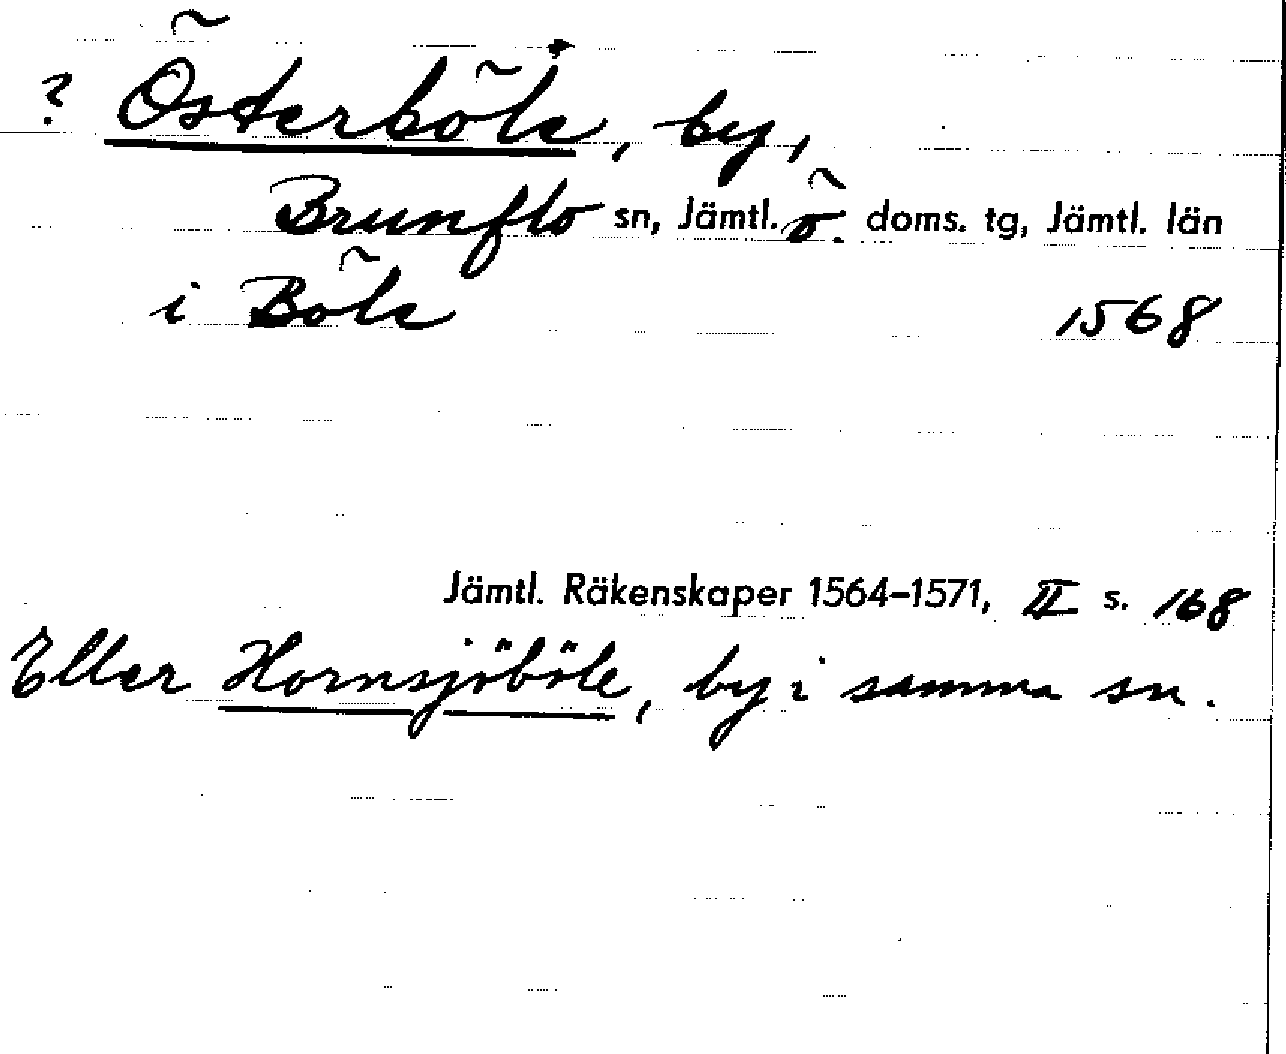 ? Österböle, by,
Brunflo sn, Jämtl. ö. doms. tg, Jämtl. län
i Böle 1568
Jämtl. Räkenskaper 1564–1571, II s. 168
Eller Hornsjöböle, by i samma sn.